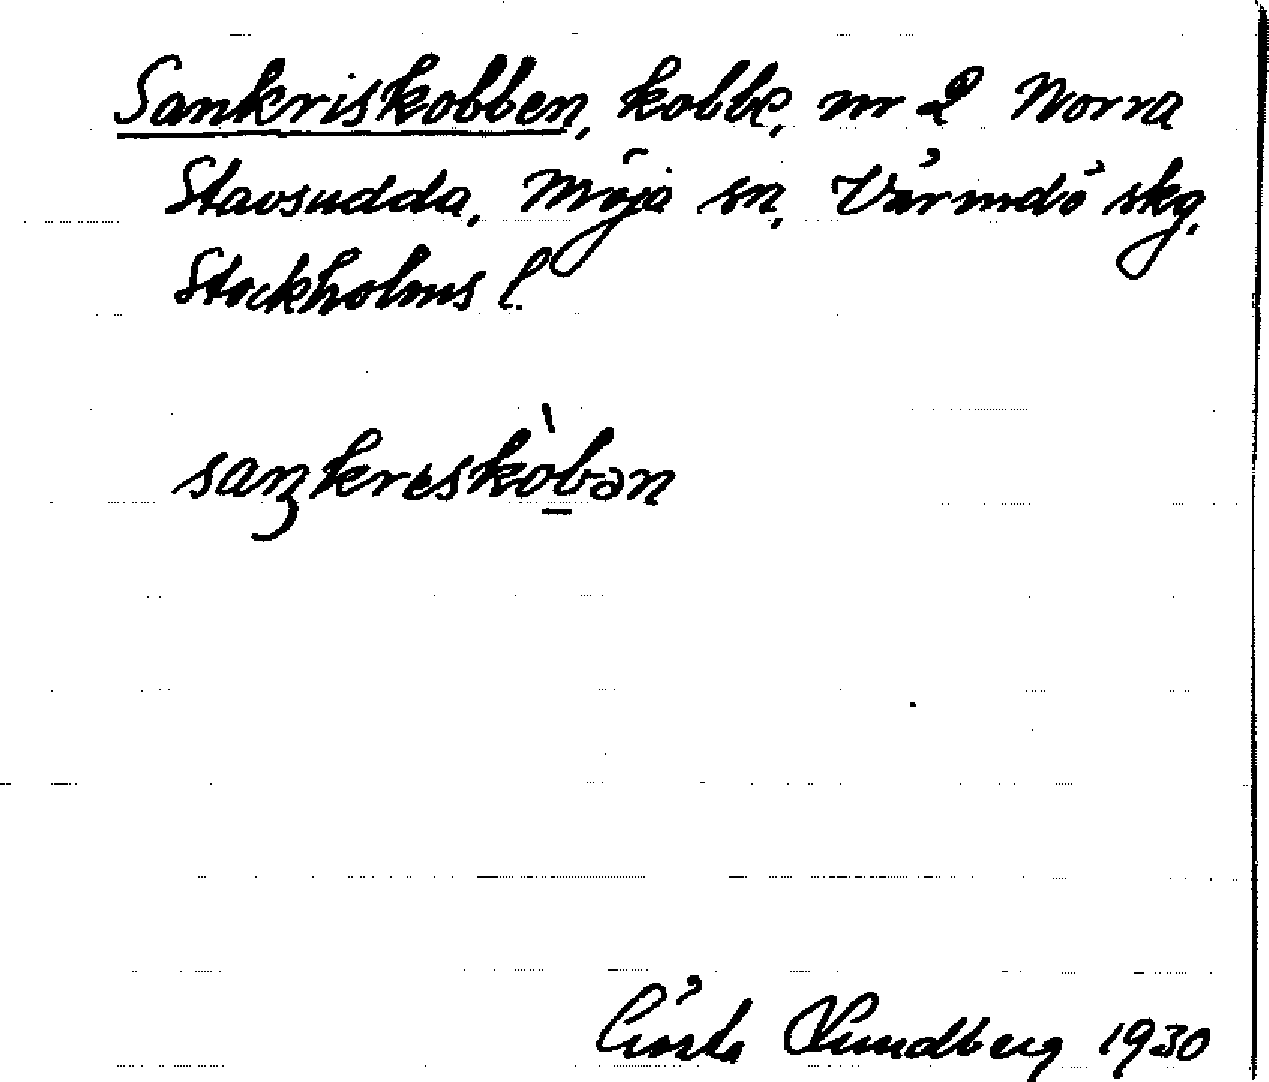 Sankriskobben, kobbe, nr 2 Norra
Stavsudda, Möja sn, Värmdö skg,
Stockholms l.
saŋkreskòbən
Gösta Sundberg 1930